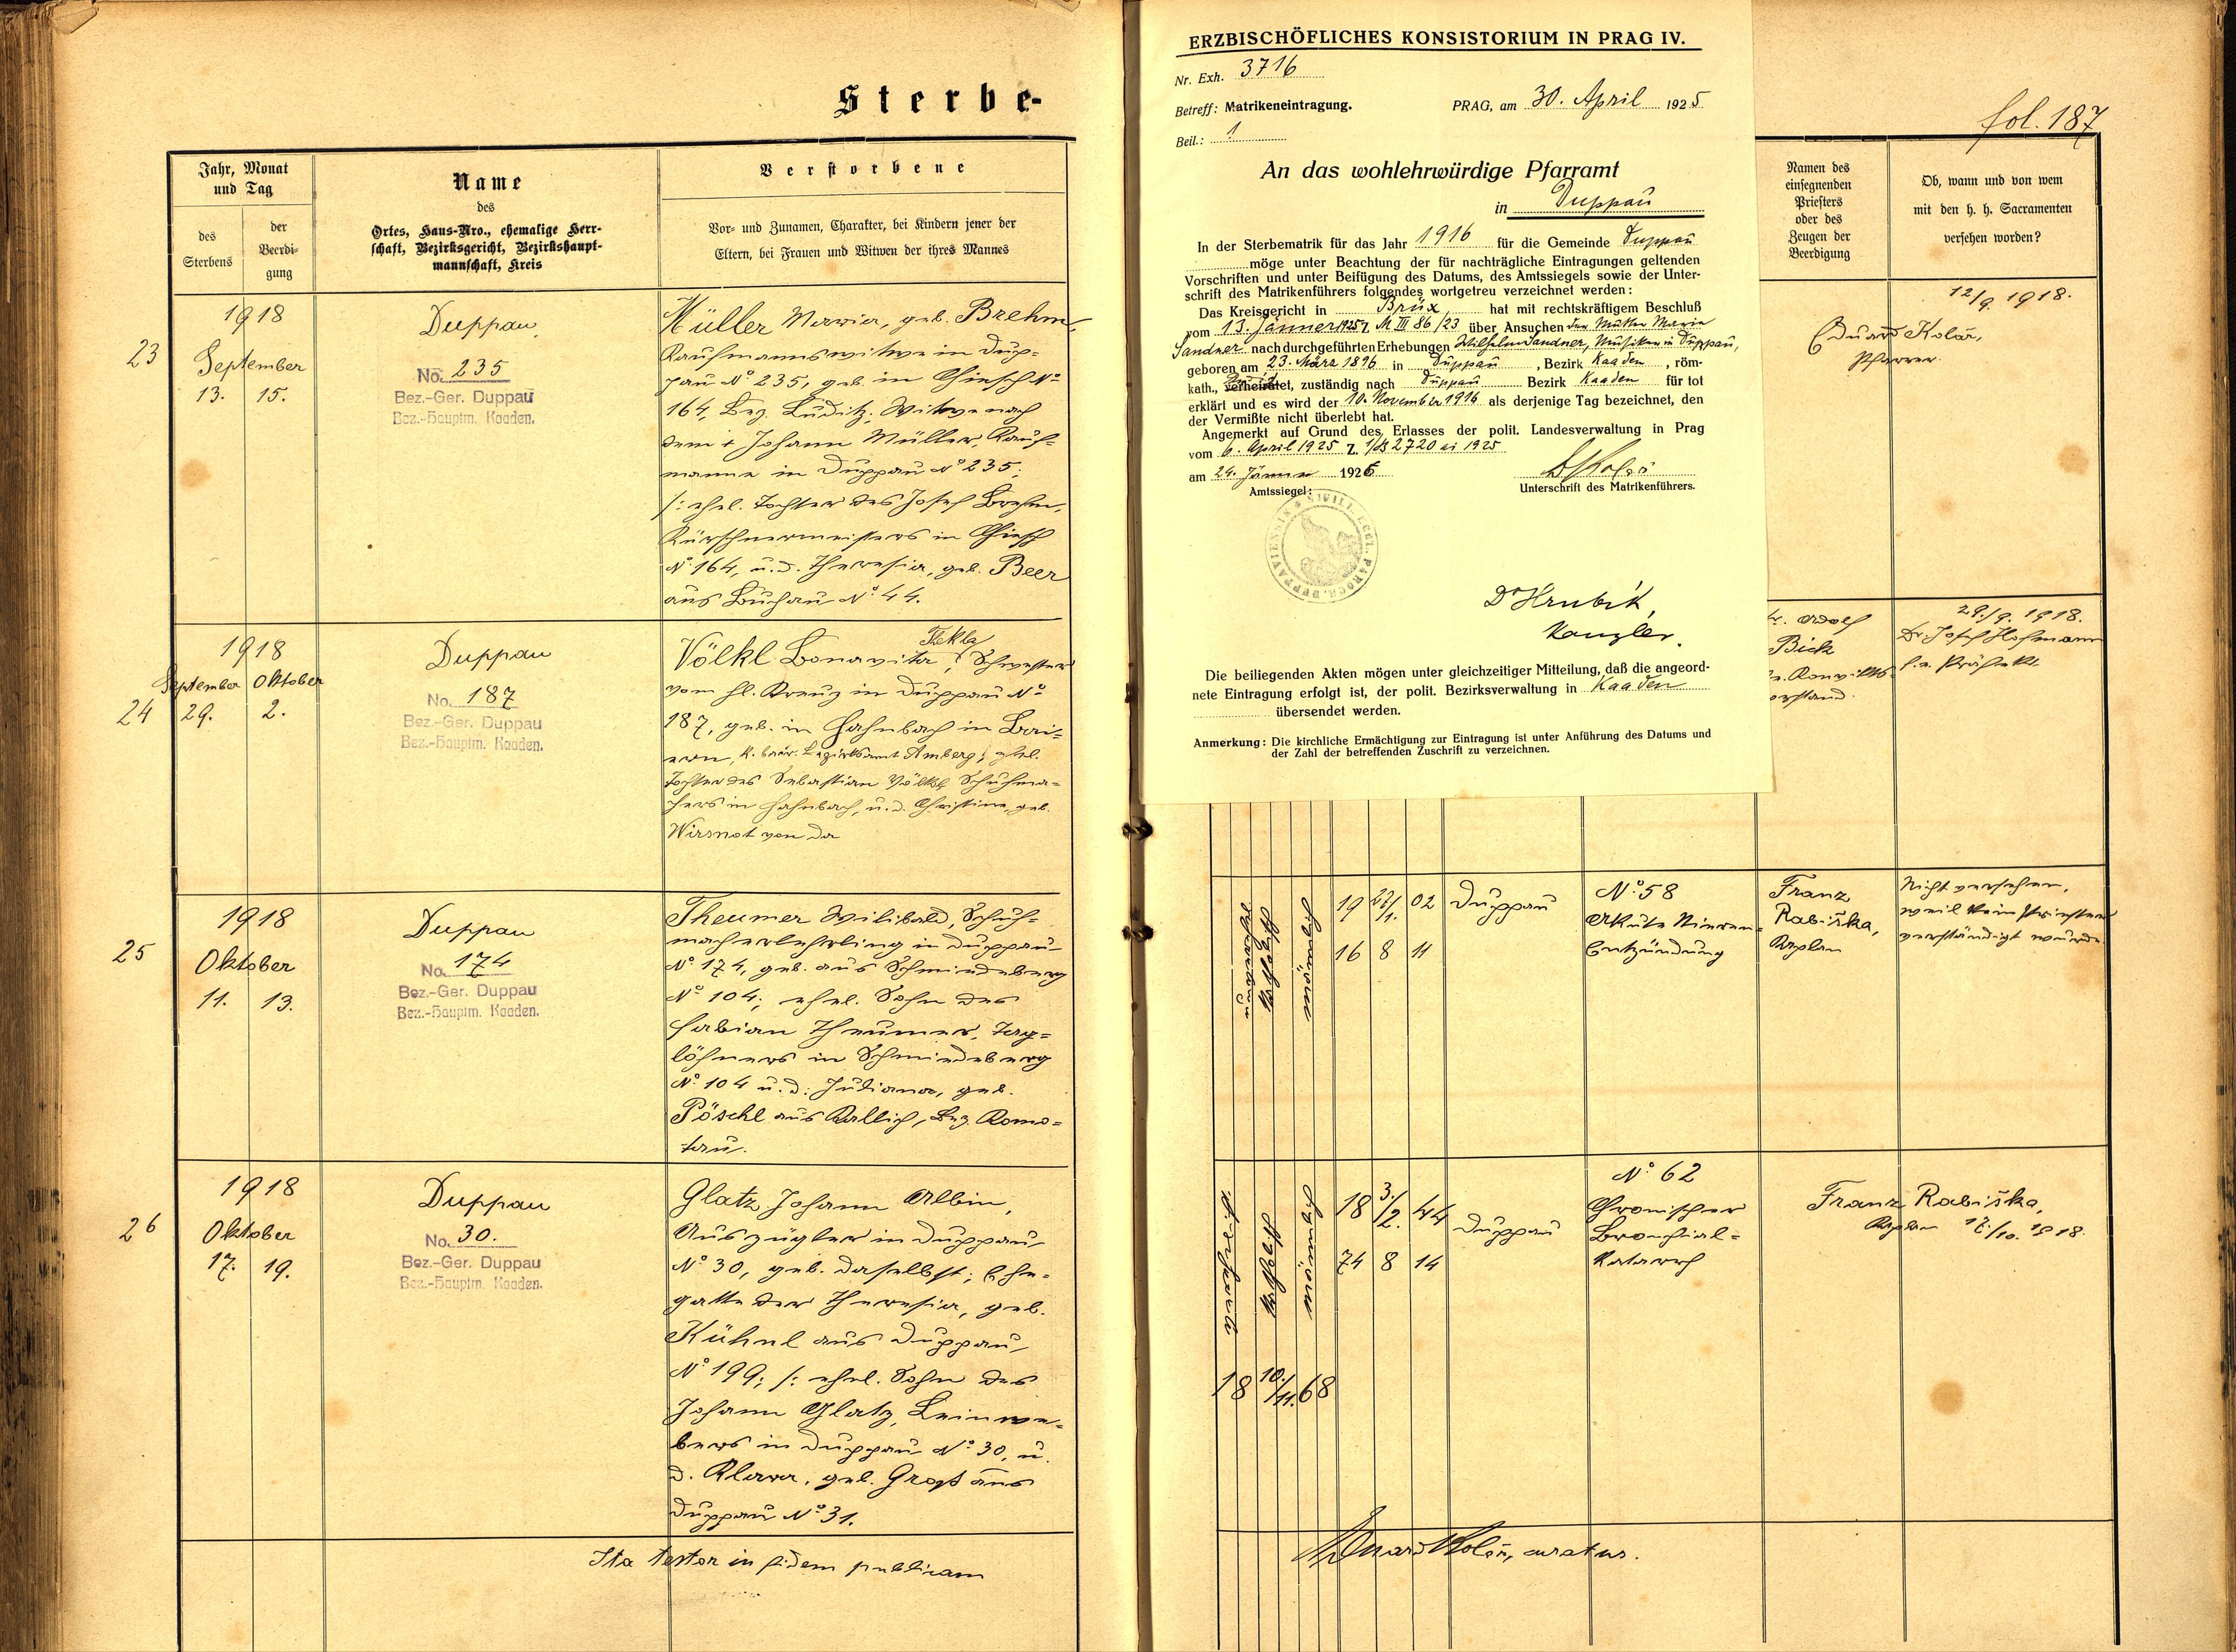 Sterbe-
Jahr, Monat
und Tag
des
Sterbens
der
Beerdi-
gung
Name
des
Ortes, Haus-Nro., ehemalige Herr-
schaft, Bezirksgericht, Bezirkshaupt-
mannschaft, Kreis
Verstorbene
Vor- und Zunamen, Charakter, bei Kindern jener der
Eltern, bei Frauen und Witwen der ihres Mannes
23
1918
September
13. 15.
Duppau
No. 235
Bez.-Ger. Duppau
Bez.-Hauptm. Kaaden.
Müller Maria, geb. Brehm,
Kaufmannswitwe in Dup-
pau No 235, geb. in Chiesch No
164, Bez. Luditz; Witwe nach
dem + Johann Müller, Kauf-
manne in Duppau No 235;
/: ehel. Tochter des Josef Brehm,
Kürschnermeisters in Chiesch
No 164, u. d. Theresia, geb. Beer
aus Buchau No 44.
24
1918
September Oktober
29. 2.
Duppau
No. 187
Bez.-Ger. Duppau
Bez.-Hauptm. Kaaden.
Thekla
Völkl Bonavita, Schwester
vom hl. Kreuz in Duppau No
187, geb. in Hahnbach in Bai-
ern, k. bair. Bezirksamt Amberg; ehel.
Tochter des Sebastian Völkl, Schuhma-
chers in Hahnbach, u. d. Christine, geb.
Wiasnot von da
25
1918
Oktober
11. 13.
Duppau
No. 174
Bez.-Ger. Duppau
Bez.-Hauptm. Kaaden.
Theumer Wilibald, Schuh-
macherlehrling in Duppau
No 174, geb. aus Schmiedeberg
No 104; ehel. Sohn des
Fabian Theumer, Tag-
löhners in Schmiedeberg
No 104 u. d. Juliana, geb.
Pöschl aus Kallich, Bez. Komo-
tau.
26
1918
Oktober
17. 19.
Duppau
No. 30.
Bez.-Ger. Duppau
Bez.-Hauptm. Kaaden.
Glatz Johann Albin,
Auszügler in Duppau
No 30, geb. daselbst; Ehe-
gatte der Theresia, geb.
Kühnl aus Duppau
No 199; /: ehel. Sohn des
Johann Glatz, Leinwe-
bers in Duppau No 30, u.
d. Klara, geb. Grost aus
Duppau No 31.
Ita testor in fidem publicam
ERZBISCHÖFLICHES KONSISTORIUM IN PRAG IV.
Nr. Exh. 3716
Betreff: Matrikeneintragung. PRAG, am 30. April 1925
Beil.: 1
An das wohlehrwürdige Pfarramt
in Duppau
In der Sterbematrik für das Jahr 1916 für die Gemeinde Duppau
möge unter Beachtung der für nachträgliche Eintragungen geltenden
Vorschriften und unter Beifügung des Datums, des Amtssiegels sowie der Unter-
schrift des Matrikenführers folgendes wortgetreu verzeichnet werden:
Das Kreisgericht in Brüx hat mit rechtskräftigem Beschluß
vom 13. Jänner 1925 Z. Nc III 86/23 über Ansuchen der Mutter Maria
Sandner nach durchgeführten Erhebungen Wilhelm Sandner, Musiker in Duppau,
geboren am 23. März 1896 in Duppau, Bezirk Kaaden, röm-
kath., verheiratet, zuständig nach Duppau Bezirk Kaaden für tot
erklärt und es wird der 10. November 1916 als derjenige Tag bezeichnet, den
der Vermißte nicht überlebt hat.
Angemerkt auf Grund des Erlasses der polit. Landesverwaltung in Prag
vom 6. April 1925 Z. 1/B 2720 ai 1925
am 24. Jänner 1926 EKolář
Amtssiegel: Unterschrift des Matrikenführers.
Dr Hrubík,
Kanzler.
Die beiliegenden Akten mögen unter gleichzeitiger Mitteilung, daß die angeord-
nete Eintragung erfolgt ist, der polit. Bezirksverwaltung in Kaaden
übersendet werden.
Anmerkung: Die kirchliche Ermächtigung zur Eintragung ist unter Anführung des Datums und
der Zahl der betreffenden Zuschrift zu verzeichnen.
fol. 187
Namen des
einsegnenden
Priesters
oder des
Zeugen der
Beerdigung
Ob, wann und von wem
mit den h. h. Sacramenten
versehen worden?
12/9. 1918.
Eduard Kolář,
Pfarrer.
Adolf
Bick
Konvikts-
vorstand.
29./9. 1918.
Dr. Josef Hofmann
f.e. Präfekt
katholisch
männlich
19 22/1. 02
16 8 11
Duppau
No 58
Akute Nieren-
Entzündung
Franz
Rabiška,
Kaplan
Nicht versehen,
weil kein Priester
verständigt wurde.
verheiratet
katholisch
männlich
18 10./11. 68
18 3./2. 44
74 8 14
Duppau
No 62
Chronischer
Bronchial-
Katarrh
Franz Rabiška,
Kaplan 17./10. 1918.
Eduard Kolář, curatus.